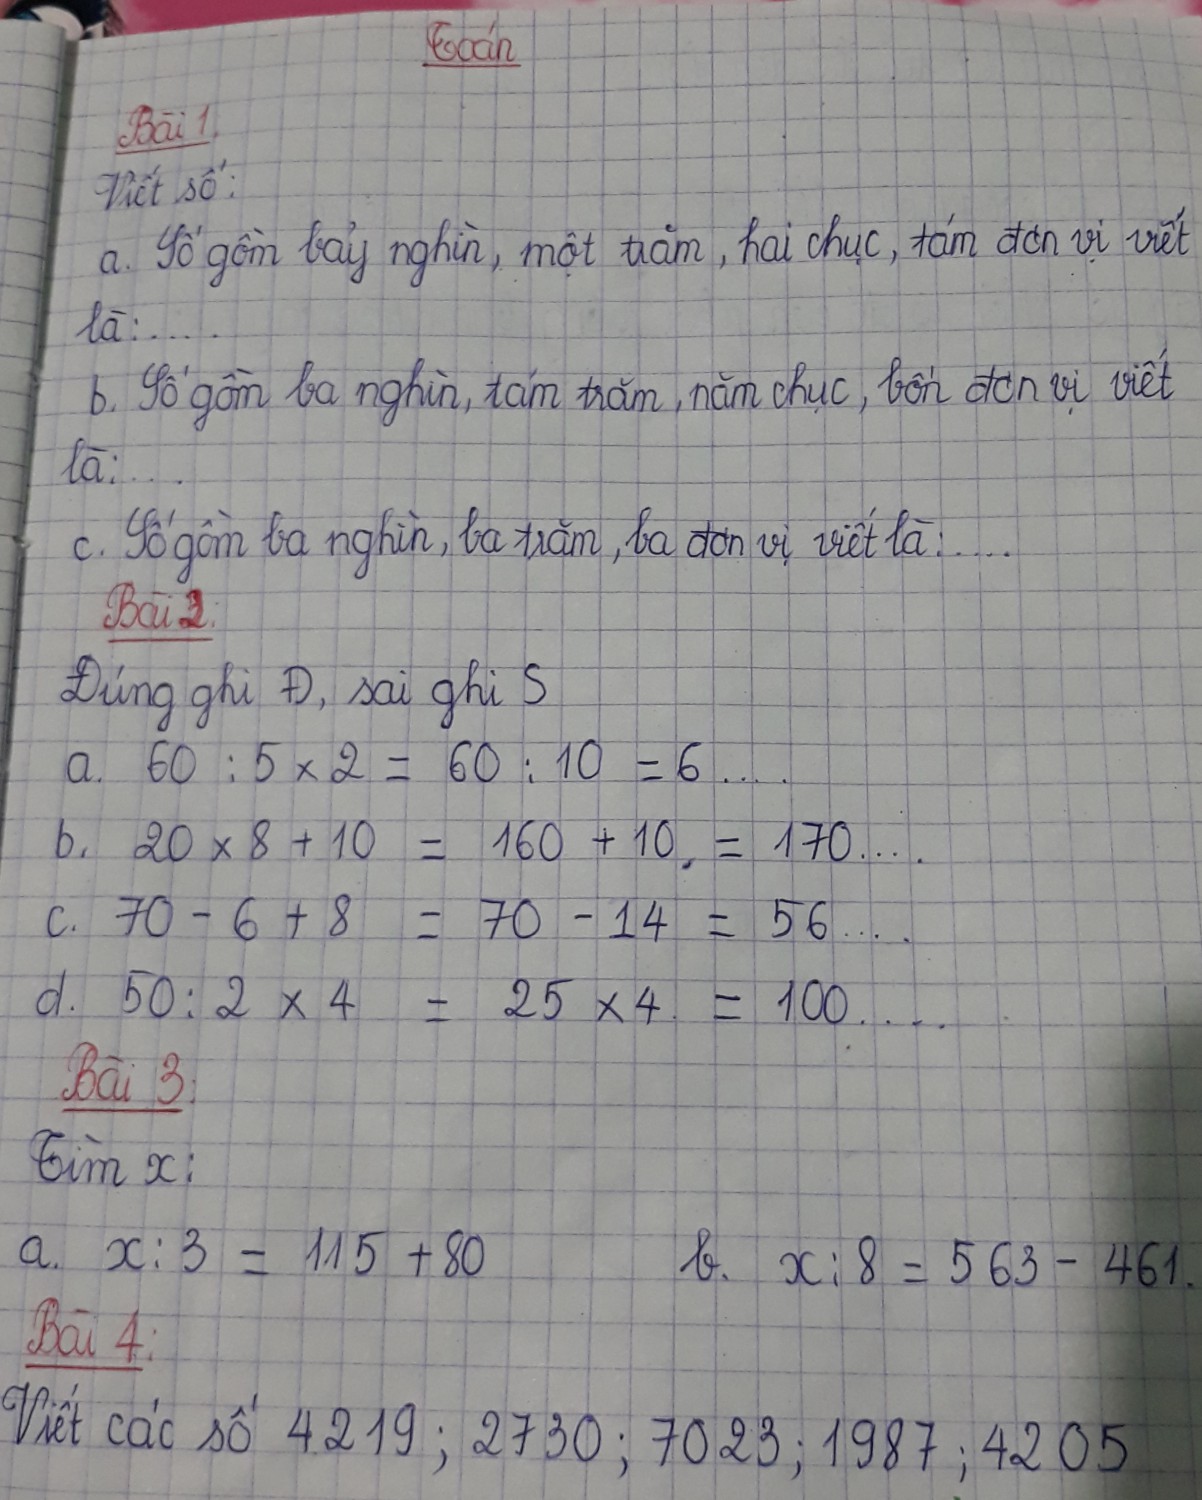 Toán
Bài 1.
Viết số:
a. Số gồm bảy nghìn, một trăm, hai chục, tám đơn vị viết
là:.....
b. Số gồm ba nghìn, tám trăm, năm chục, bốn đơn vị viết
là:....
c. Số gồm ba nghìn, ba trăm, ba đơn vị viết là:.....
Bài 2:
Đúng ghi Đ, sai ghi S
a. 60 : 5 × 2 = 60 : 10 = 6....
b. 20 × 8 + 10 = 160 + 10. = 170....
c. 70 - 6 + 8 = 70 - 14 = 56....
d. 50 : 2 × 4 = 25 × 4. = 100.....
Bài 3:
Tìm x:
a. x : 3 = 115 + 80 b. x : 8 = 563 - 461.
Bài 4:
Viết các số 4219; 2730; 7023; 1987; 4205